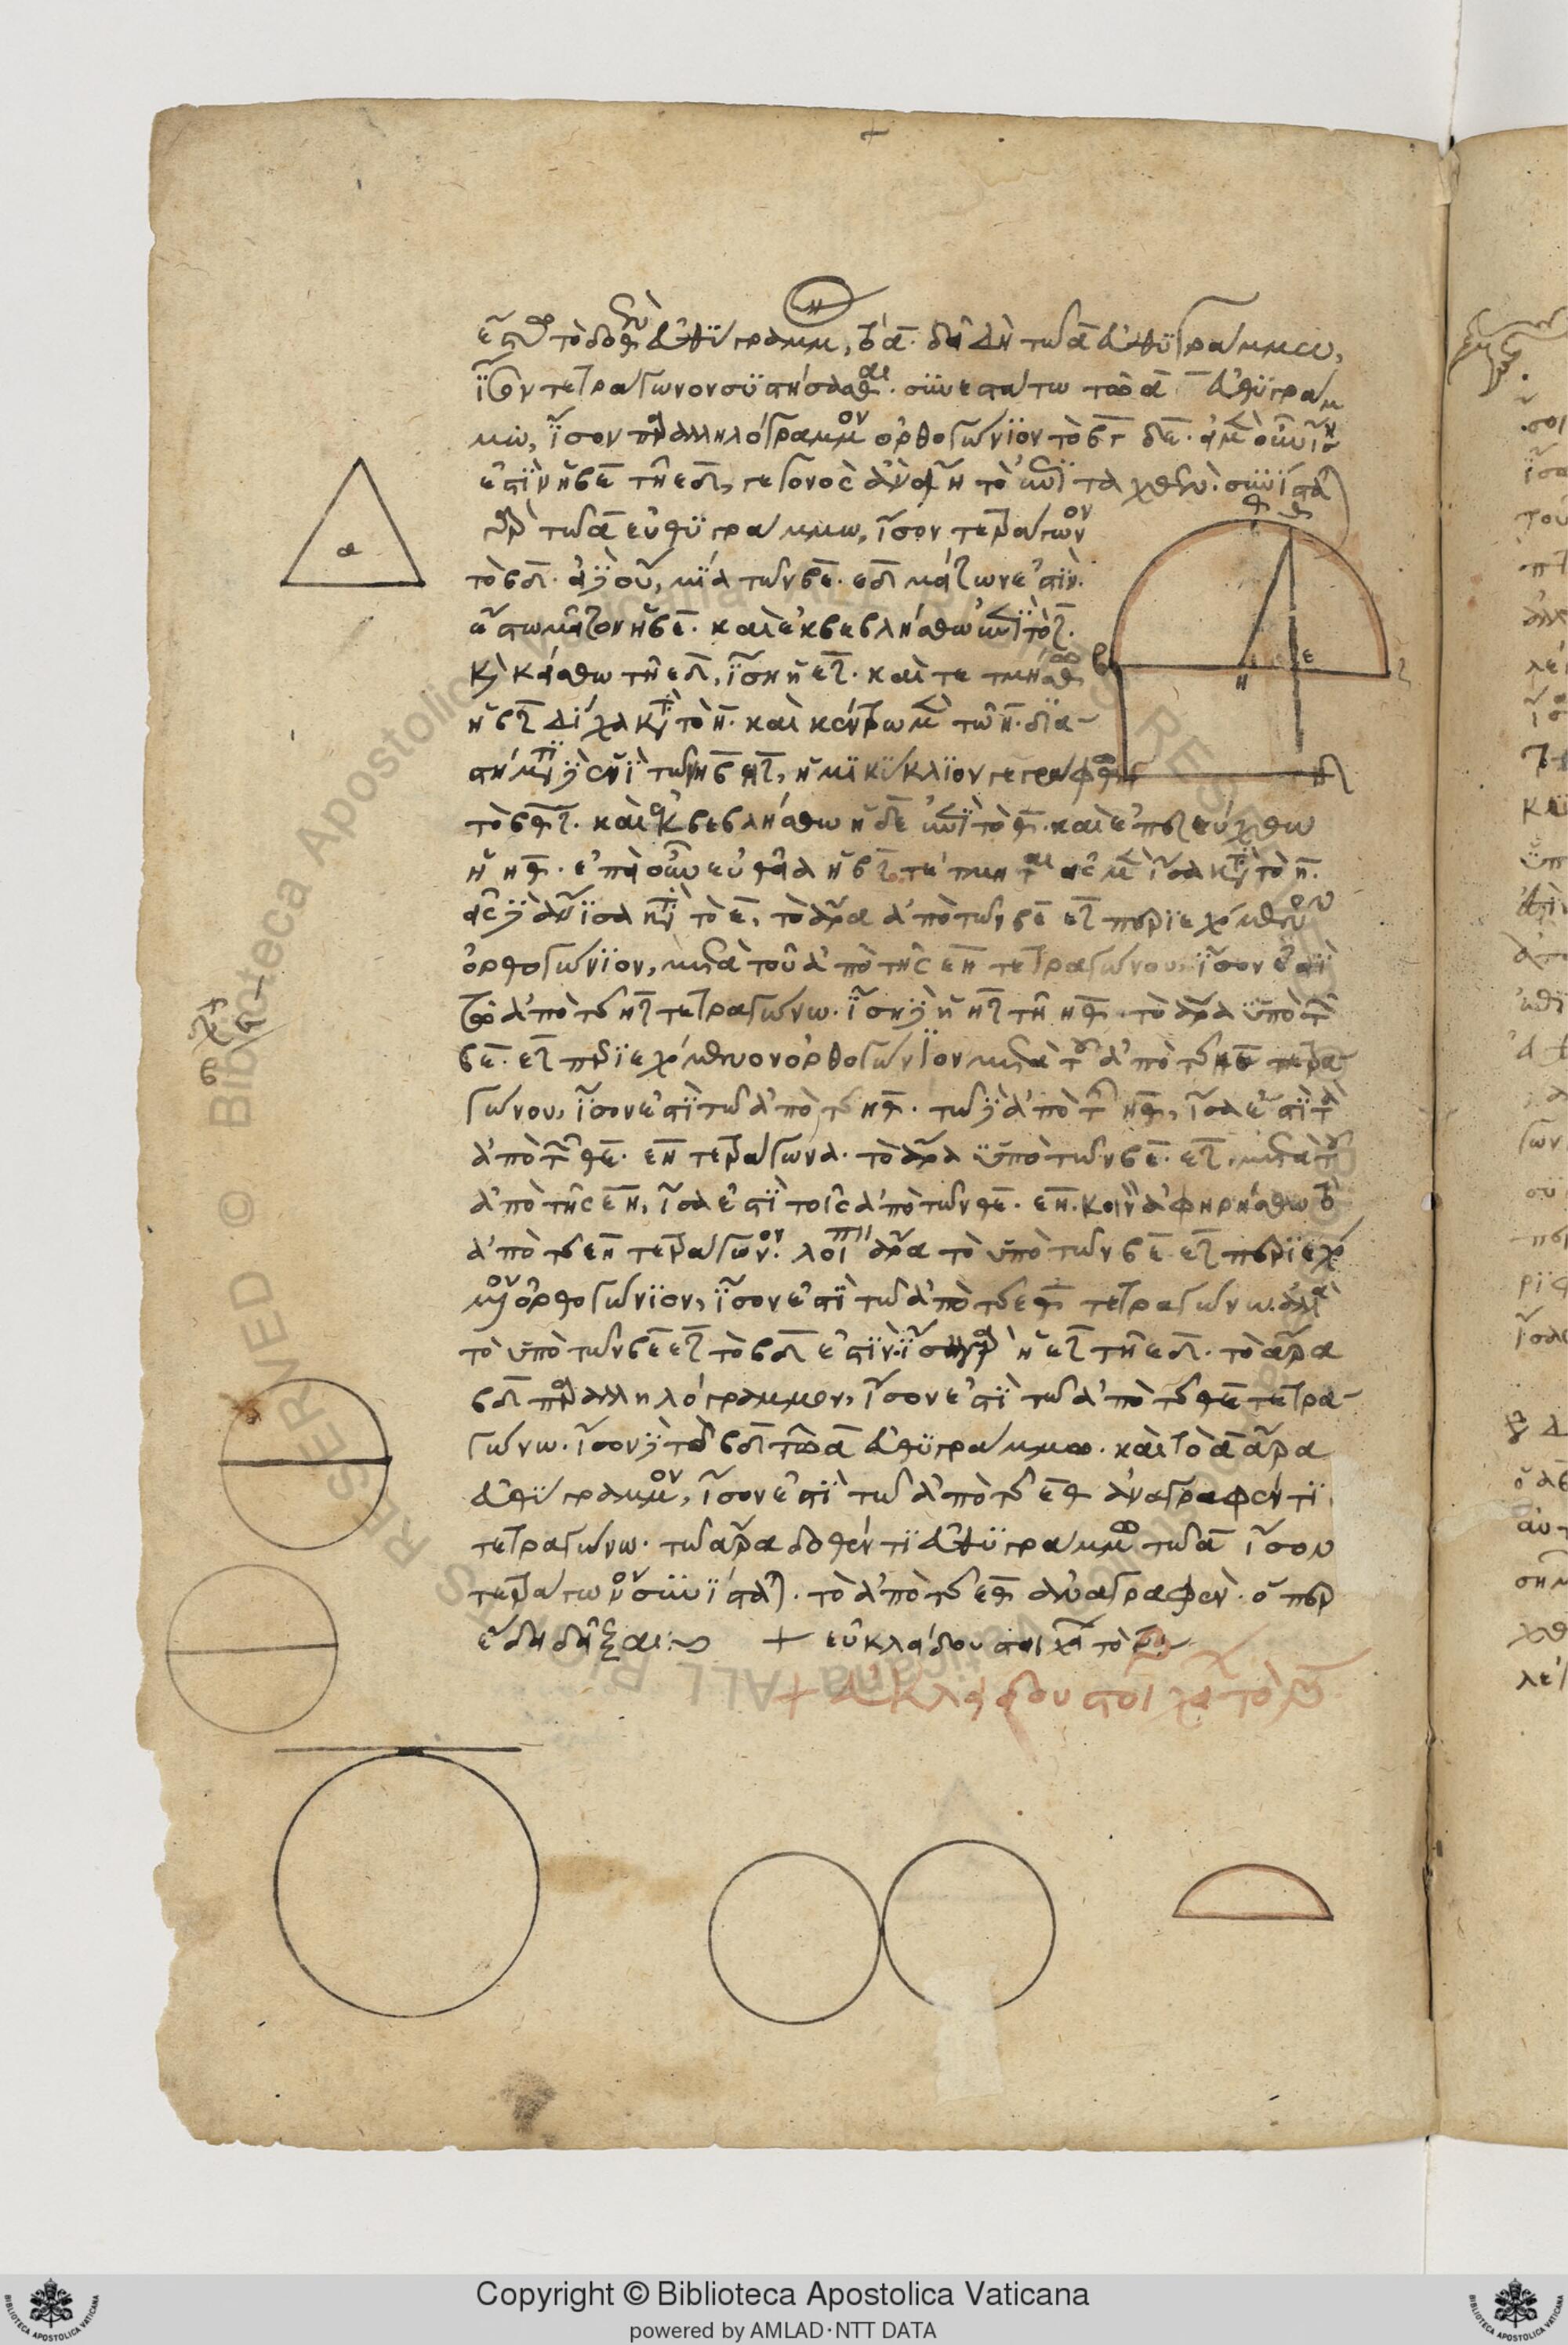 ἔστω τὸ δοθὲν εὐθύγραμμ, τὸ α. δεῖ δὴ τῶ α εὐθυγράμμω,
ἴσον τετράγωνον συστήσασθαι. συνεστάτω τῶ α εὐθυγράμ
μω, ἴσον παραλληλόγραμμον ὀρθογώνιον τὸ β γ δε. εἰ μὲν οὖν ἴση
ἐστὶν ἡ βε τῆ εδ, γεγονὸς ἂν εἴη τὸ ἐπιταχθέν. συνίσταται
γὰρ τῶ α εὐθυγράμμω, ἴσον τετράγωνον
τὸ βδ. εἰ δὲ οὔ, μία τῶν βε. εδ μείζων ἐστίν.
ἔστω μείζον ἡ βε. καὶ ἐκβεβλήσθω ἐπὶ τὸ ζ.
καὶ κείσθω τῆ εδ, ἴση ἡ εζ. καὶ τετμήσθω
ἡ βζ δίχα κατὰ τὸ η. καὶ κέντρω μὲν τῶ η. δια-
στήματι δὲ ἑνὶ τῶν ηβ ηζ, ἡμικύκλιον γεγράφθω
τὸ βθζ. καὶ ἐκβεβλήσθω ἡ δε ἐπὶ τὸ θ. καὶ ἐπεζεύχθω
ἡ ηθ. ἐπεὶ οὖν εὐθεῖα ἡ βζ τέτμηται εἰς μὲν ἴσα κατὰ τὸ η.
εἰς δὲ ἄνισα κατὰ τὸ ε, τὸ ἄρα ἀπὸ τῶν βε εζ περιεχόμενον
ὀρθογώνιον, μετὰ τοῦ ἀπὸ τῆς εη τετραγώνου ἴσον ἐστὶ
τῶ ἀπὸ τῆς ηζ τετραγώνω. ἴση δὲ ἡ ηζ τῆ ηθ. τὸ ἄρα ὑπὸ τῶν
βε. εζ περιεχόμενον ὀρθογώνιον μετὰ τοῦ ἀπὸ τῆς ηε τετρα-
γώνου, ἴσον ἐστὶ τῶ ἀπὸ τῆς ηθ. τῶ δὲ ἀπὸ τῆς ηθ, ἴσα ἐστὶ τὰ
ἀπὸ τῶν θε. εη τετράγωνα. τὸ ἄρα ὑπὸ τῶν βε. εζ, μετὰ τοῦ
ἀπὸ τῆς εη, ἴσα ἐστὶ τοῖς ἀπὸ τῶν θε. εη. κοινὸν ἀφηρήσθω τὸ
ἀπὸ τῆς εη τετράγωνον. λοιπὸν ἄρα τὸ ὑπὸ τῶν βε εζ περιεχό
μενον ὀρθογώνιον, ἴσον ἐστὶ τῶ ἀπὸ τῆς εθ τετραγώνω. ἀλλὰ
τὸ ὑπὸ τῶν βε εζ τὸ βδ ἐστίν. ἴση γὰρ ἡ εζ τῆ εδ. τὸ ἄρα
βδ παραλληλόγραμμον, ἴσον ἐστὶ τῶ ἀπὸ τῆς θε τετρα-
γώνω. ἴσον δὲ τὸ βδ τῶ α εὐθυγράμμω. καὶ τὸ α ἄρα
εὐθύγραμμον, ἴσον ἐστὶ τῶ ἀπὸ τῆς εθ ἀναγραφέντι
τετραγώνω. τῶ ἄρα δοθέντι εὐθυγράμμω τῶ α ἴσον
τετράγωνον συνίσταται. τὸ ἀπὸ τῆς εθ ἀναγραφέν. ὅπερ
ἔδει δεῖξαι:~ + εὐκλείδου στοιχεῖ τὸ β:~
+ εὐκλείδου στοιχεῖ τὸ
α
β
θ
ε
η
ζ
Copyright © Biblioteca Apostolica Vaticana
powered by AMLAD·NTT DATA